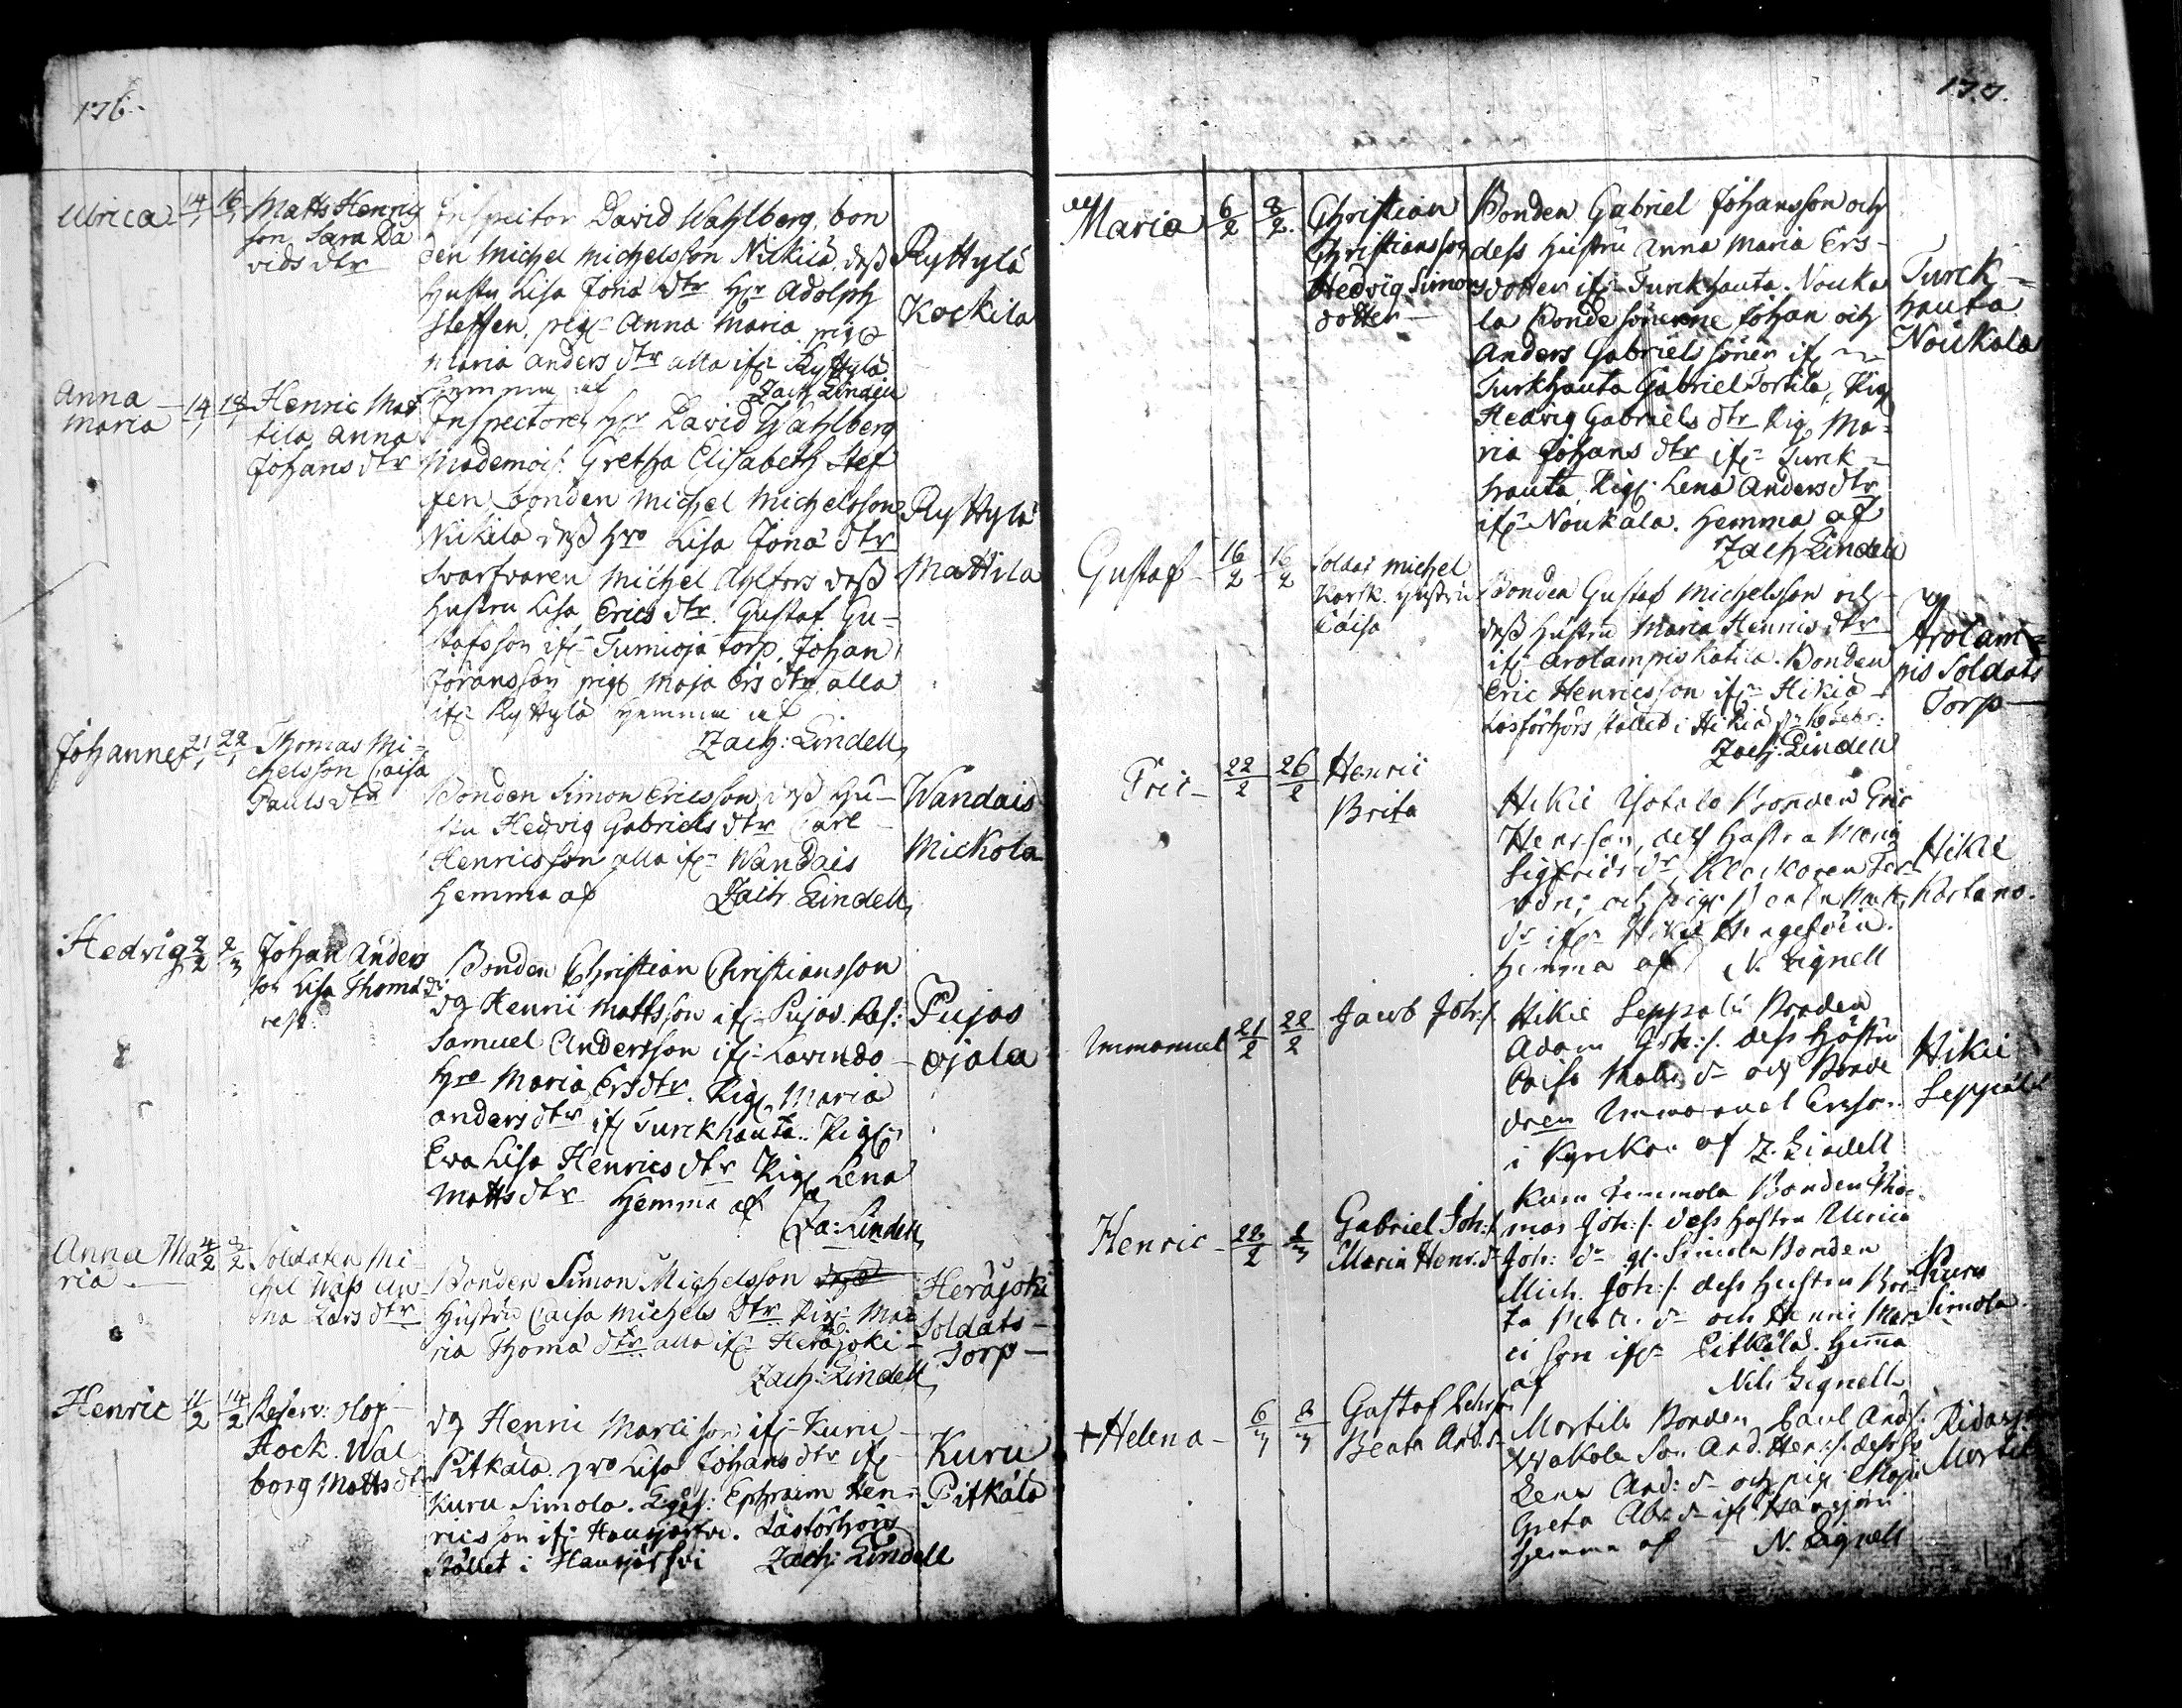 176.
Ulrica 14/1 16/1 Matts Henrics
son Sara Da
vids dtr
Inspector David Wahlberg, bon
den Michel Michelsson Nickilä, dess
hustru Lisa Jona dtr Hr Adolph
Steffen, pig: Anna Maria pig
Maria Anders dtr alla ifr Ryttylä
Hemma af Zach Lindell
Ryttylä
Kockila
Anna
Maria 14/1 18/1 Henric Mat
tila Anna
Johans dtr
Inspectoren Hr David Wahlberg
Mademois: Gretha Elisabeth Stef
fen bonden Michel Michelsson
Nickilä dess Hro Lisa Jona dtr
Svarfvaren Michel dess
hustru Lisa Erics dtr. Gustaf Gu-
stafsson ifr Tumioja torp, Johan
Joransson pig Maja Ers dtr alla
ifr Ryttylä Hemma af
Zach: Lindell
Ryttylä
Mattila
Johannes 21/1 22/1 Thomas Mi-
chelsson Caisa
Pauls dtr
Bonden Simon Ericsson dess hu-
stru Hedvig Gabriels dtr Carl
Henricsson alla ifr Wandais
Hemma af Zach Lindell
Wandais
Mickola
Hedvig 2/2 2/3 Johan Anders
son Lisa Thoma dr
Bonden Christian Christiansson
dg Henric Mattsson ifr Pujos.
Samuel Andersson ifr
Hro Maria Ersdtr. Pig Maria
Anders dtr ifr Turckhauta. Pig
Eva Lisa Henrics dtr Pig Lena
Matts dtr Hemma af
Za: Lindell
Pujos
ojala
Anna Ma 4/2 /2 Soldaten Mi-
ria. chel Wass An-
na Lars dtr
Bonden Simon Michelsson
hustru Caisa Michels dtr Pig Ma-
ria Thoma dtr alla ifr Herajoki
Zach: Lindell
Herajoki
Soldats-
Torp
Henric 11/2 14/2 Reserv: Olof
Stock. Wal
borg Matts dtr
dg Henric Marcisson ifr Kuru
Pitkälä. Hro Lisa Johans dtr ifr
Kuru Simola. Ephraim Hen-
ricsson ifr Hausjärfvi. Läsförhörs
stället i Hausjärfvi Zach: Lindell
Kuru
Pitkälä
177.
Maria 6/2 8/2. Christian
Christiansson
Hedvig Simons
dotter
Bonden Gabriel Johansson och
dess hustru Anna Maria Ers-
dotter ifr Turckhauta. Nouka
la Bonde sönerne Johan och
Anders Gabriels söner ifr
Turkhauta Gabriel Tortila, Pig
Hedvig Gabriels dtr Pig Ma-
ria Johans dtr ifr Turck-
hauta, Pig: Lena Anders dtr
ifr Noukala. Hemma af
Zach Lindell
Turck-
hauta
Noukala
Gustaf 16/2 16/2 Soldat Michel
Karsk. hustru
Caisa
Bonden Gustaf Michelsson och
dess hustru Maria Henrics dtr
ifr Arolampis Katila. Bonden
Eric Henricsson ifr Hikiä
Läsförhörs stället i Hikiä d 16 Febr:
Zach: Lindell
Arolam-
pis Soldats
Torp
Eric 22/2 26/2 Henric
Brita
Hikiä Yotala Bonden Eric
Hensson, dess hustru Maria
Sigfrids dr, Klockaren
och pig
dr ifr Hikiä
Hemma af N. Lignell
Hikiä
Kartano.
Immanuel 21/2 22/2 Jacob Joh:s.
Hikiä Seppälä Bonden
Adam Joh:s. dess hustru
Caisa dr och Bonde
dren Immanuel Ersson
i Kyrkan af Z. Lindell
Hikiä
Seppälä
Henric 22/2 /3 Gabriel Joh:s.
Maria Henr. dr
Kuru Temmola Bonden Tho-
mas Joh:s. dess hustru Ulrica
Joh: dr Simola Bonden
Mich. Joh:s. dess hustru Bri-
ta dr och Henric Mar-
ci son ifr Pitkälä. Hemma
af Nils Lignell
Kuru
Simola.
+ Helena 6/3 8/3 Gustaf
Beata And. dr
Mortila Bonden Paul And:s.
Wakola Son And. Hen:s. dess h
Lena And: dr och pig: Maja
Greta Abr. dr ifr Hausjärvi
Hemma af N. Lignell
Ridasj
Mortil